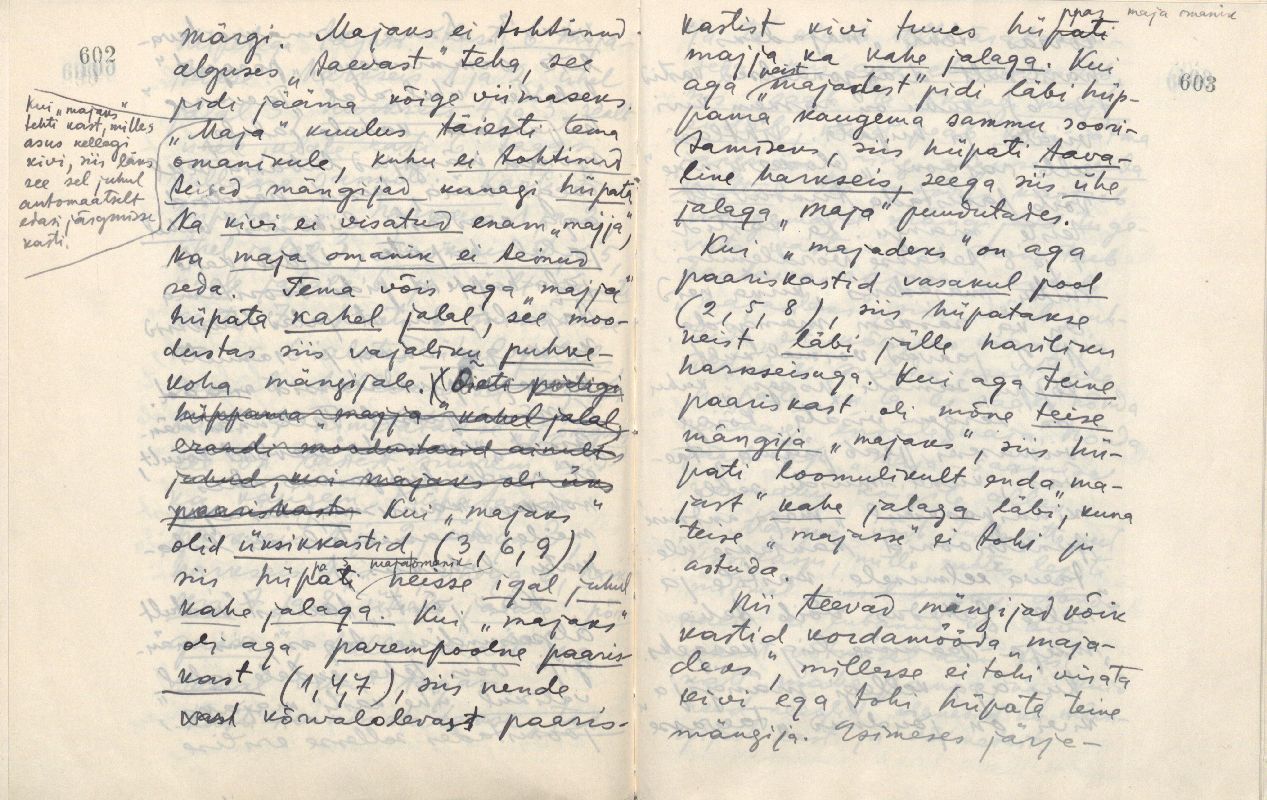 602
märgi. Majaks ei tohtinud
alguses „taevast" teha, see
pidi jääma kõige viimaseks.
„Maja" kuulus täiesti tema
omanikule, kuhu ei tohtinud
teised mängijad kunagi hüpata.
Ka kivi ei visatud enam „majja",
ka maja omanik ei teinud
seda. Tema võis aga „majja"
hüpata kahel jalal, see moo-
dustas siis vajaliku puhke-
koha mängijale. (Õieti pidigi
hüppama „majja" kahel jalal,
erandi moodustasid ainult
juhud, kui majaks oli üks
paariskast. Kui „majaks"
olid üksikkastid (3, 6, 9),
majaomanik
siis hüpati neisse igal juhul
kahe jalaga. Kui „majaks"
oli aga parempoolne paaris-
kast (1,4,7), siis nende
kast kõrvalolevast paaris-
Kui „majaks"
tehti kast, milles
asus kellegi
kivi, siis läks
see sel juhul
automaatselt
edasi järgmisse
kasti.
603
maja omanik
kastist kivi tuues hüpati
majja ka kahe jalaga. Kui
neist
aga „majadest" pidi läbi hüp-
pama kaugema sammu soori-
tamiseks, siis hüpati tava-
line harkseis, seega siis ühe
jalaga „maja" puudutades.
Kui „majadeks" on aga
paariskastid vasakul pool
(2, 5, 8), siis hüpatakse
neist läbi jälle hariliku
harkseisuga. Kui aga teine
paariskast oli mõne teise
mängija „majaks", siis hü-
pati loomulikult enda „ma-
jast" kahe jalaga läbi, kuna
teise „majasse" ei tohi ju
astuda.
Nii teevad mängijad kõik
kastid kordamööda „maja-
deks", millesse ei tohi visata
kivi ega tohi hüpata teine
mängija. Esimeses järje-